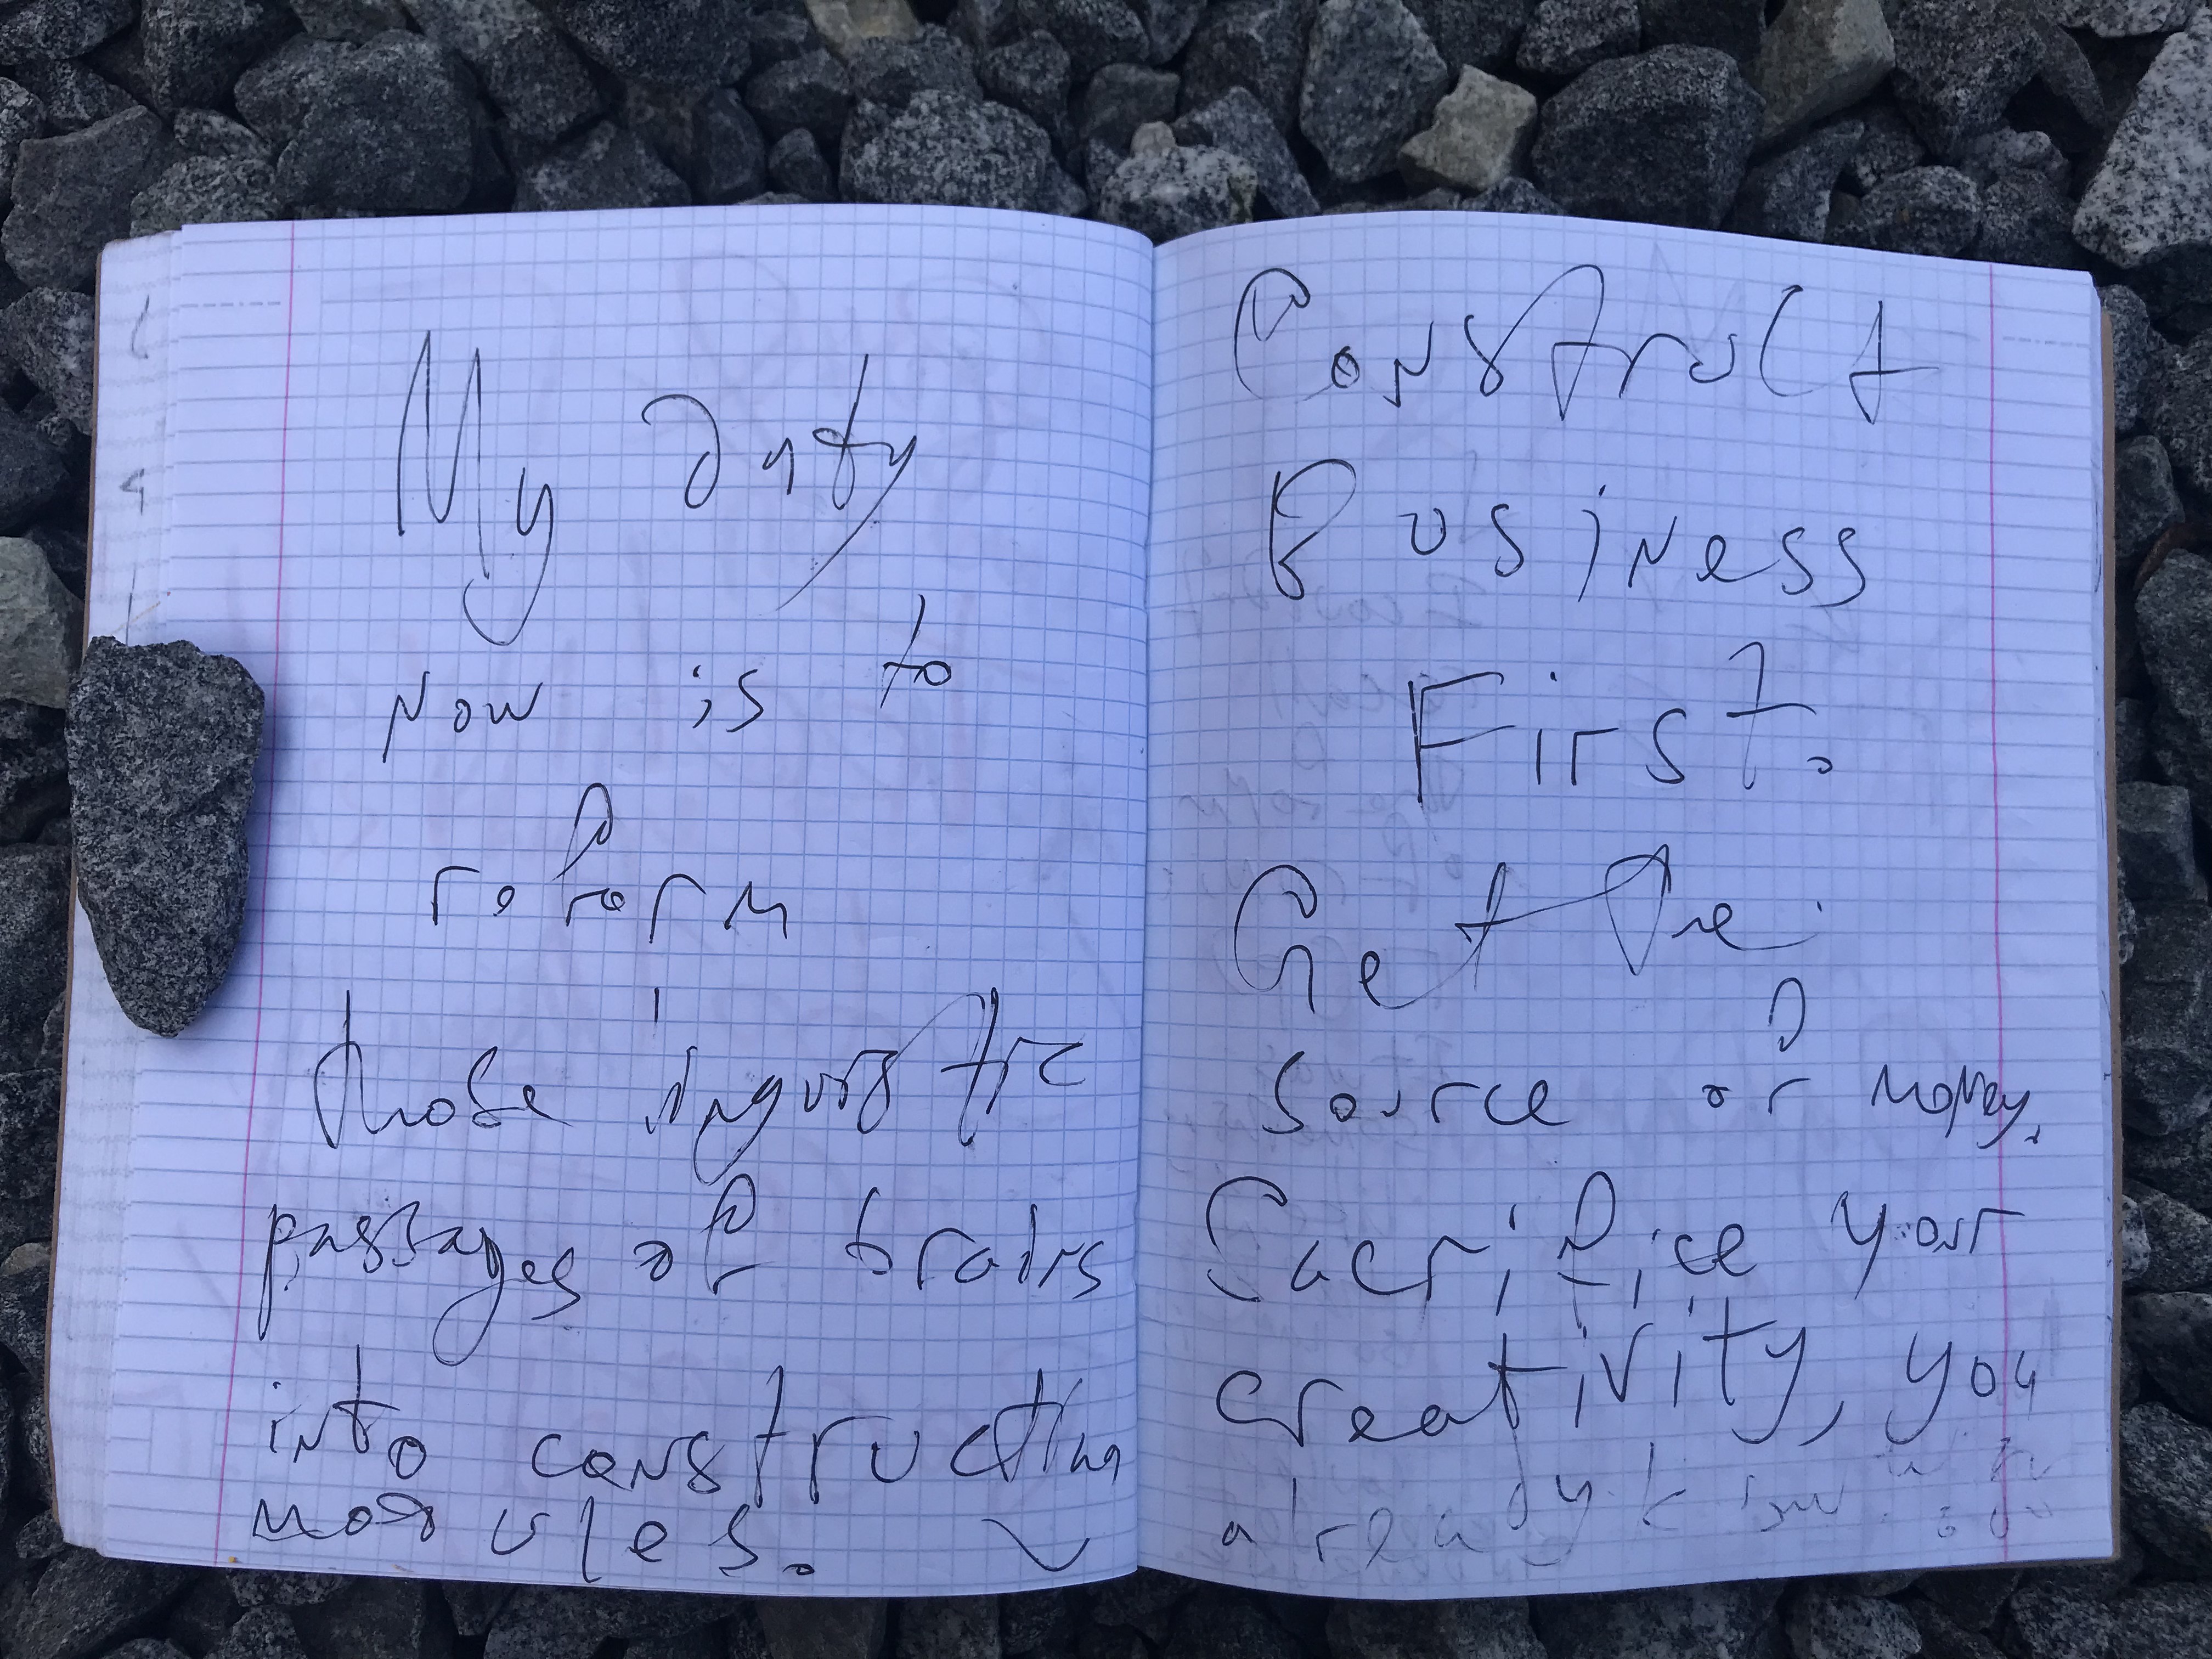 My duty
now is to
reform
those
passages of brains
into constructing
modules.
Construct
Business
First.
Get the
Sorce of money.
Sacrifice your
creativity, you
already